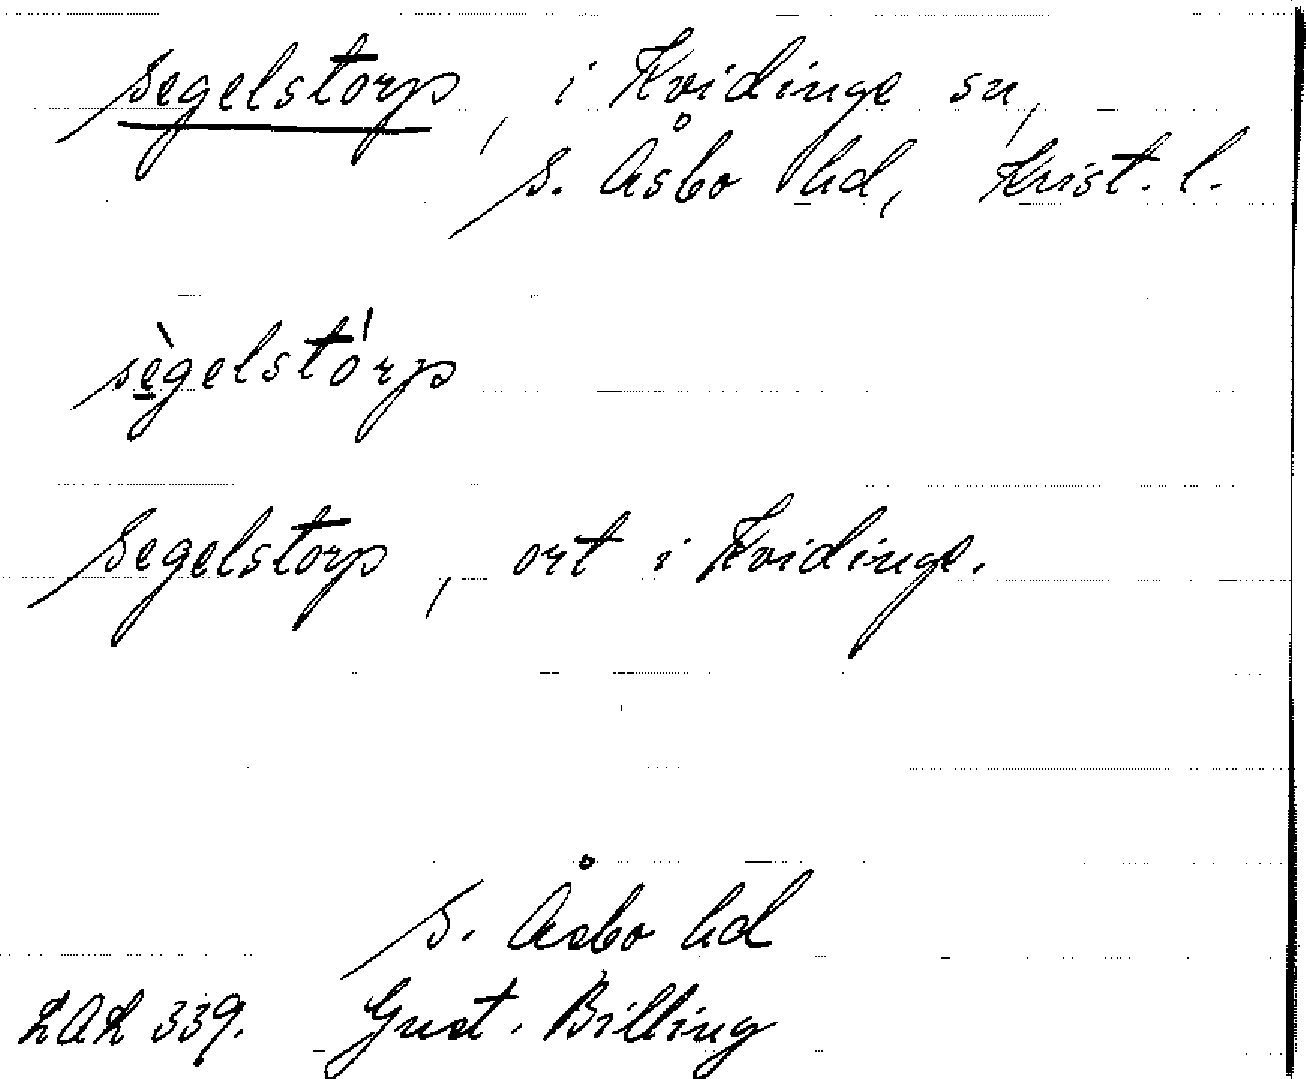 Segelstorp, i Kvidinge sn,
S. Åsbo hd, Krist. l.
sè̱gelstórp
Segelstorp, ort i Kvidinge.
S. Åsbo hd
LAL 339. Gust. Billing